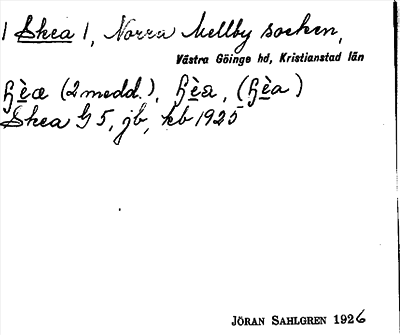 | Skea |, Norra Mellby socken,
Västra Göinge hd, Kristianstad län
(2 medd.),
Skea G 5, jb, kb 1925
JÖRAN SAHLGREN 1926